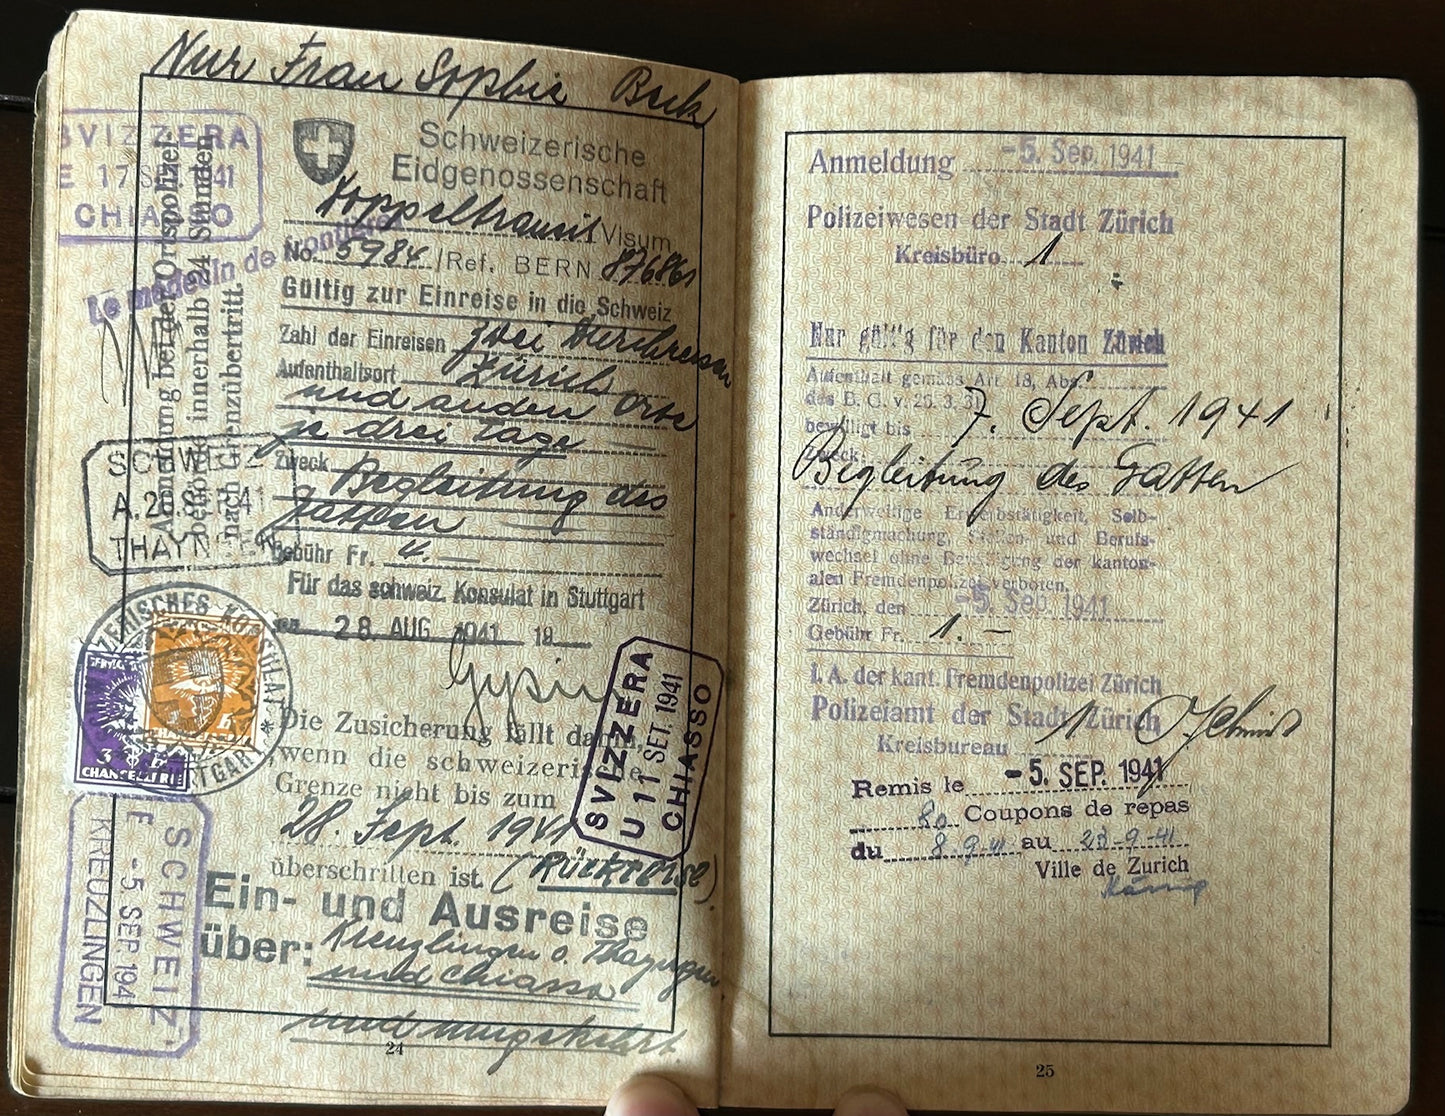 Nur Frau Sophie Beck
Schweizerische
Eidgenossenschaft
Doppeltransit Visum
No. 5984 / Ref. BERN 876861
Gültig zur Einreise in die Schweiz
Zahl der Einreisen zwei Durchreisen
Aufenthaltsort Zürich
und anderen Orte
je drei Tage
Zweck Begleitung des
Gatten
Gebühr Fr. 4.—
Für das schweiz. Konsulat in Stuttgart
28. AUG. 1941 19
Gysin
Die Zusicherung fällt dahin,
wenn die schweizerische
Grenze nicht bis zum
28. Sept. 1941
überschritten ist. (Rückreise).
Ein- und Ausreise
über: Kreuzlingen o. Thayngen
und Chiasso
und umgekehrt.
24
SVIZZERA
E 17 SET. 1941
CHIASSO
Le médecin de frontière
Anmeldung bei der Ortspolizei-
behörde innerhalb 24 Stunden
nach Grenzübertritt.
SCHWEIZ
A. 20.SEP.41
THAYNGEN
SCHWEIZERISCHES KONSULAT
* STUTTGART *
3
CHANCELLERIE
SCHWEIZ
E -5. SEP. 194
KREUZLINGEN
SVIZZERA
U 11 SET. 1941
CHIASSO
Anmeldung -5. Sep. 1941
Polizeiwesen der Stadt Zürich
Kreisbüro 1
Nur gültig für den Kanton Zürich
Aufenthalt gemäss Art. 18, Abs.
des B. G. v. 26. 3. 31
bewilligt bis 7. Sept. 1941
Zweck:
Begleitung des Gatten
Anderweitige Erwerbstätigkeit, Selb-
ständigmachung, Stellen- und Berufs-
wechsel ohne Bewilligung der kanton-
alen Fremdenpolizei verboten.
Zürich, den -5. Sep. 1941
Gebühr Fr. 1.—
I. A. der kant. Fremdenpolizei Zürich
Polizeiamt der Stadt Zürich
Kreisbureau 1
Remis le -5. SEP. 1941
80 Coupons de repas
du 8-9-41 au 28-9-41
Ville de Zurich
25